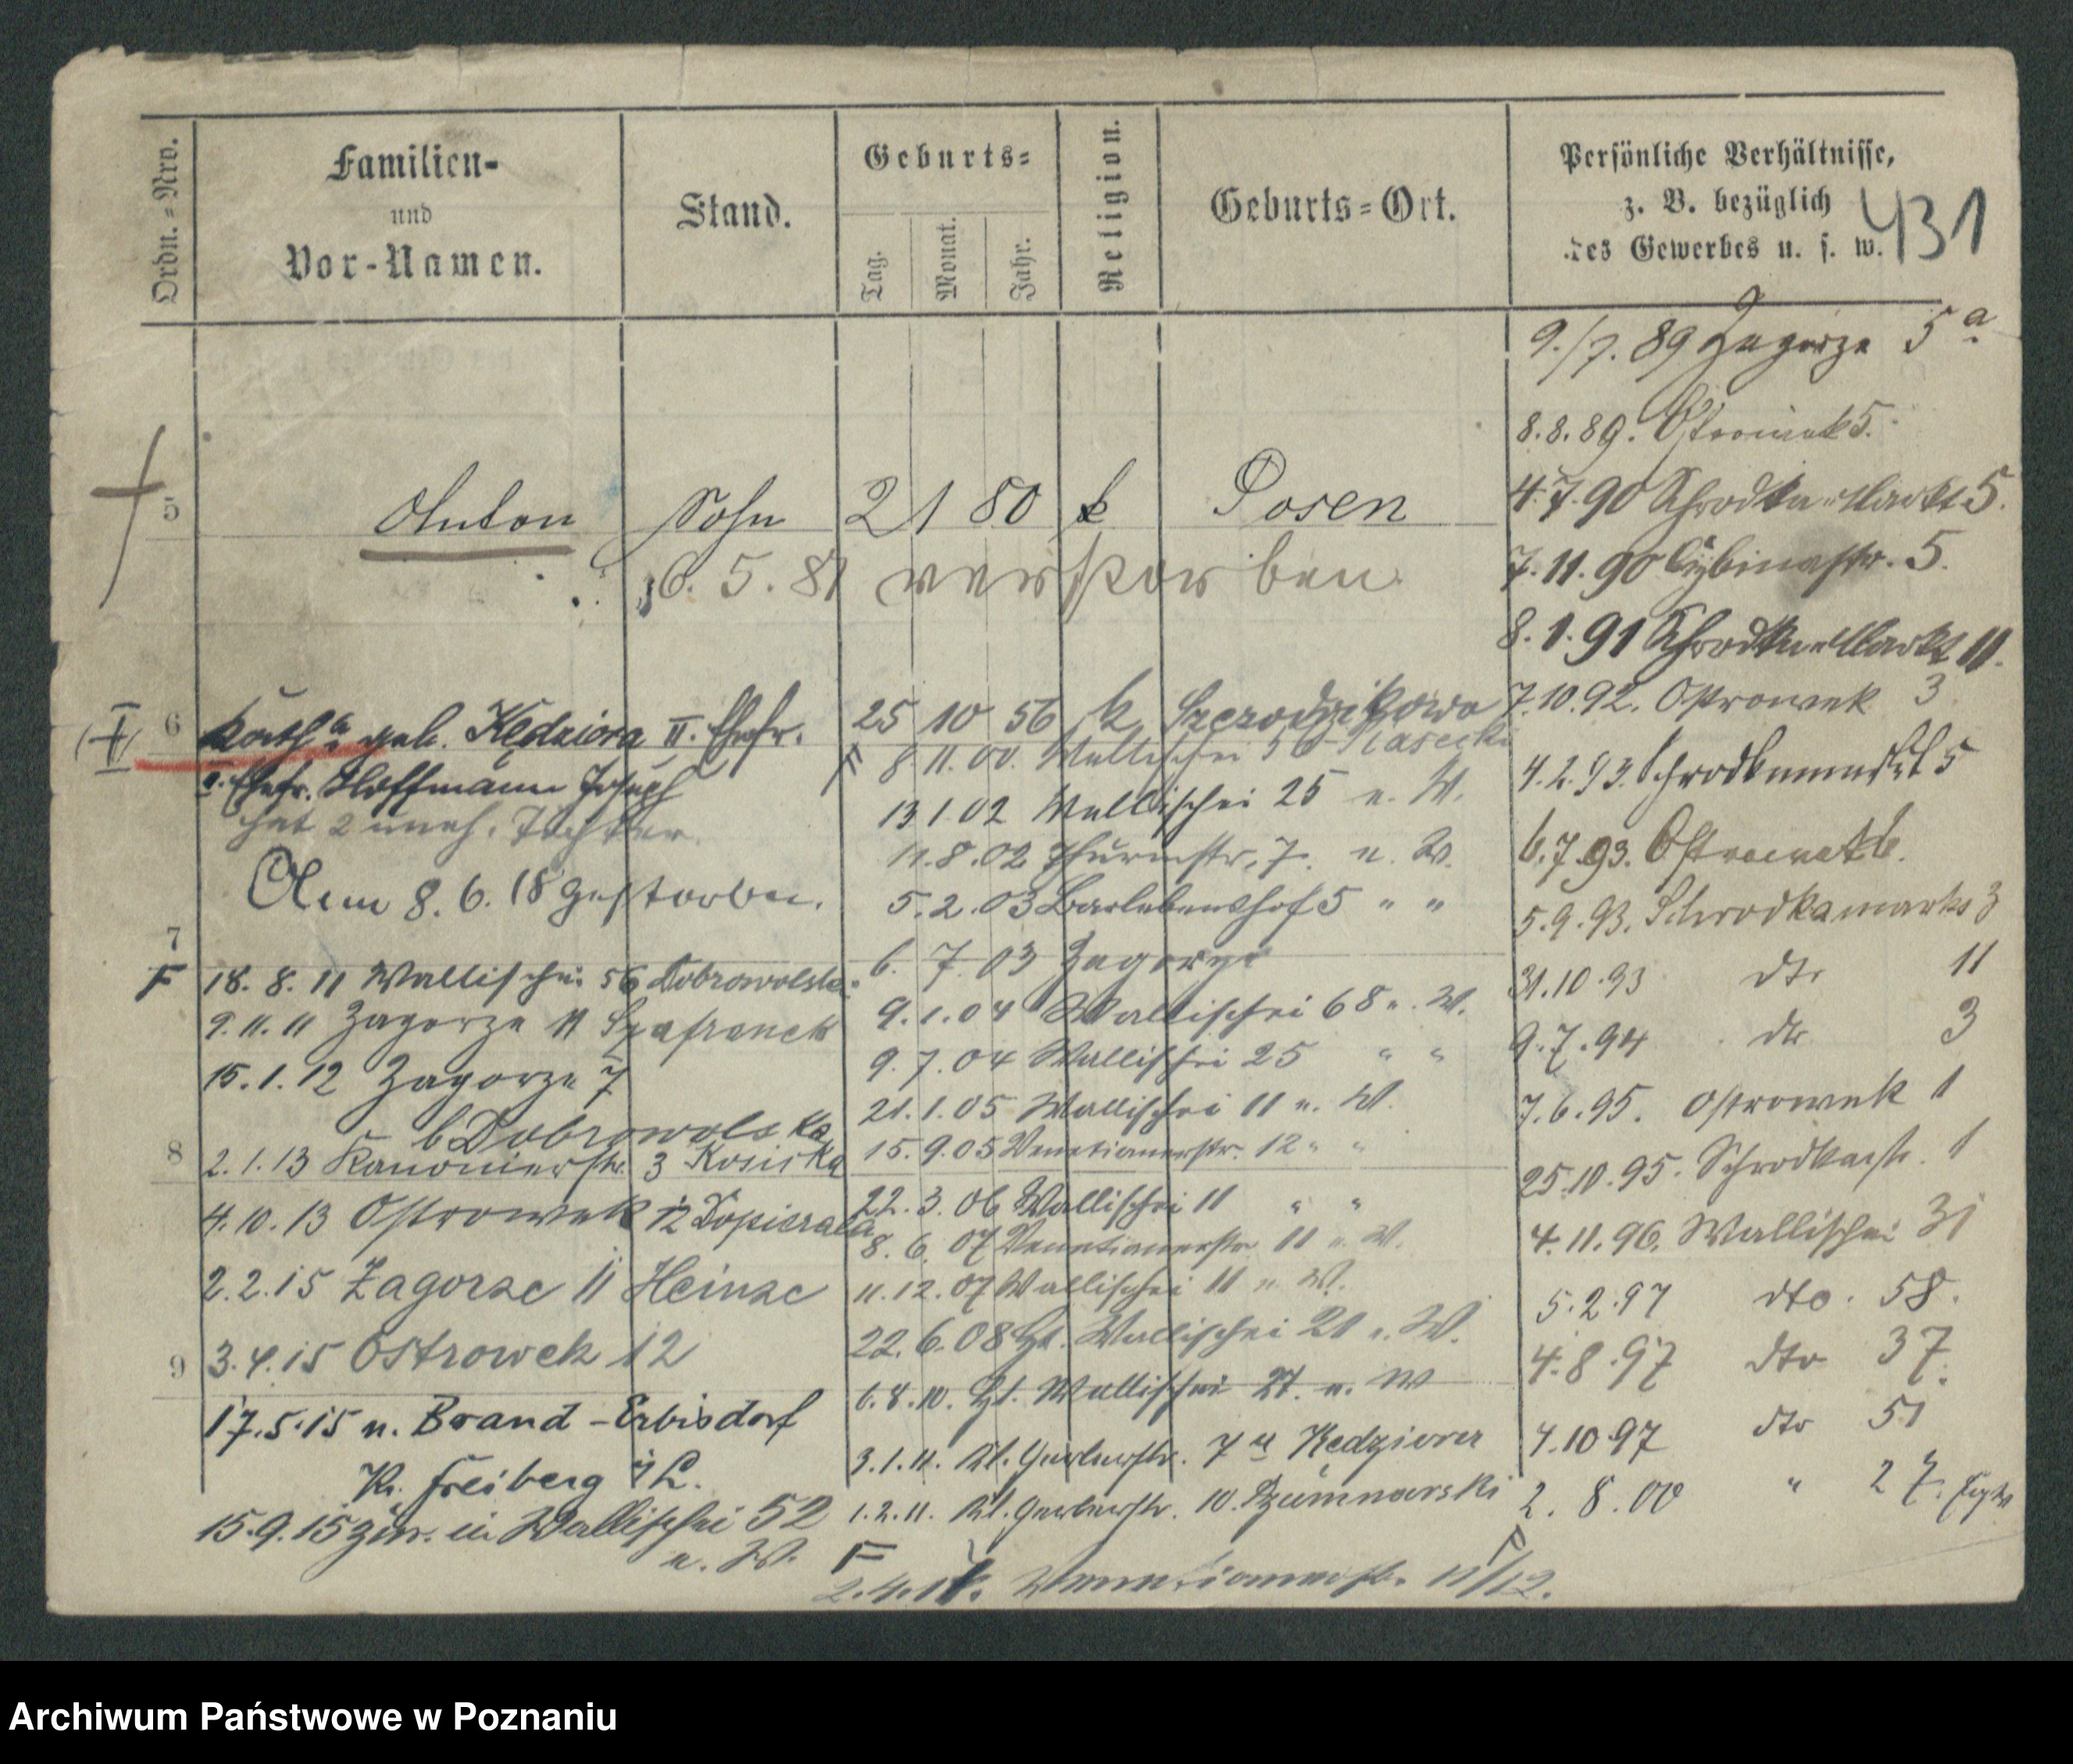 Ordn.=Nro.
Familien-
und
Vor-Namen.
Stand.
Geburts=
Tag.
Monat.
Jahr.
Religion.
Geburts=Ort.
Persönliche Verhältnisse,
z. B. bezüglich
des Gewerbes u. s. w.
431
9./7. 89 Zagorze 5a
8.8.89. Ostrowek 5.
5 Anton Sohn 2 1 80 k Posen
6.5.81 verstorben
4.7.90 Schrodka-Markt 5.
7.11.90 Cybinastr. 5.
8.1.91 Schrodka-Markt 11.
7.10.92. Ostrowek 3
4.2.93. Schrodkamarkt 5
6.7.93. Ostrowek 6.
5.9.93. Schrodkamarkt 3
31.10.93 dto 11
9.7.94 dto 3
7.6.95. Ostrowek 1
25.10.95. Schrodkastr. 1
4.11.96. Wallischei 31
5.2.97 dto. 58.
4.8.97 dto 37.
4.10 97 dto 51
2. 8.00 " 27.
6 Kath. geb. Kędziora II. Ehefr. 25 10 56 k
II. Ehefr. Hoffmann Joseph
hat 2 uneh. Töchter.
Am 8.6.18 gestorben.
F 8.11.00. Wallischei 56 Piasecki
13 1.02 Wallischei 25 u. W.
11.8.02 Thurmstr. 7. u. W.
5.2.03 Barlebenshof 5 " "
6. 7.03 Zagorze
9.1.04 Wallischei 68 u. W.
9.7.04 Wallischei 25 " "
21.1.05 Wallischei 11 u. W.
15.9.05 Venetianerstr. 12 " "
22.3.06 Wallischei 11 " "
8.6.07 Venetianerstr 11 u. W.
11.12.07 Wallischei 11 u W.
22.6.08 Wallischei 21 u. W.
6.8.10. Wallischei 27. u. W
3.1.11. Kl. Gerberstr. 7 Kędziora
1.2.11. Kl. Gerberstr. 10.
F
Venetianerstr. 11/12.
7
F 18.8.11 Wallischei 56 Dobrowolska
9.11.11 Zagorze 11 Szafranek
15.1.12 Zagorze 7
b Dobrowolska
8
2.1.13 Kanonierstr. 3
4.10.13 Ostrowek 12 Dopierala
2.2.15 Zagorze 11 Heinze
9
3.4.15 Ostrowek 12
17.5.15 n. Brand-Erbisdorf
Kr. Freiberg i/S.
15.9.15 zur. in Wallischei 52
u. W.
Archiwum Państwowe w Poznaniu